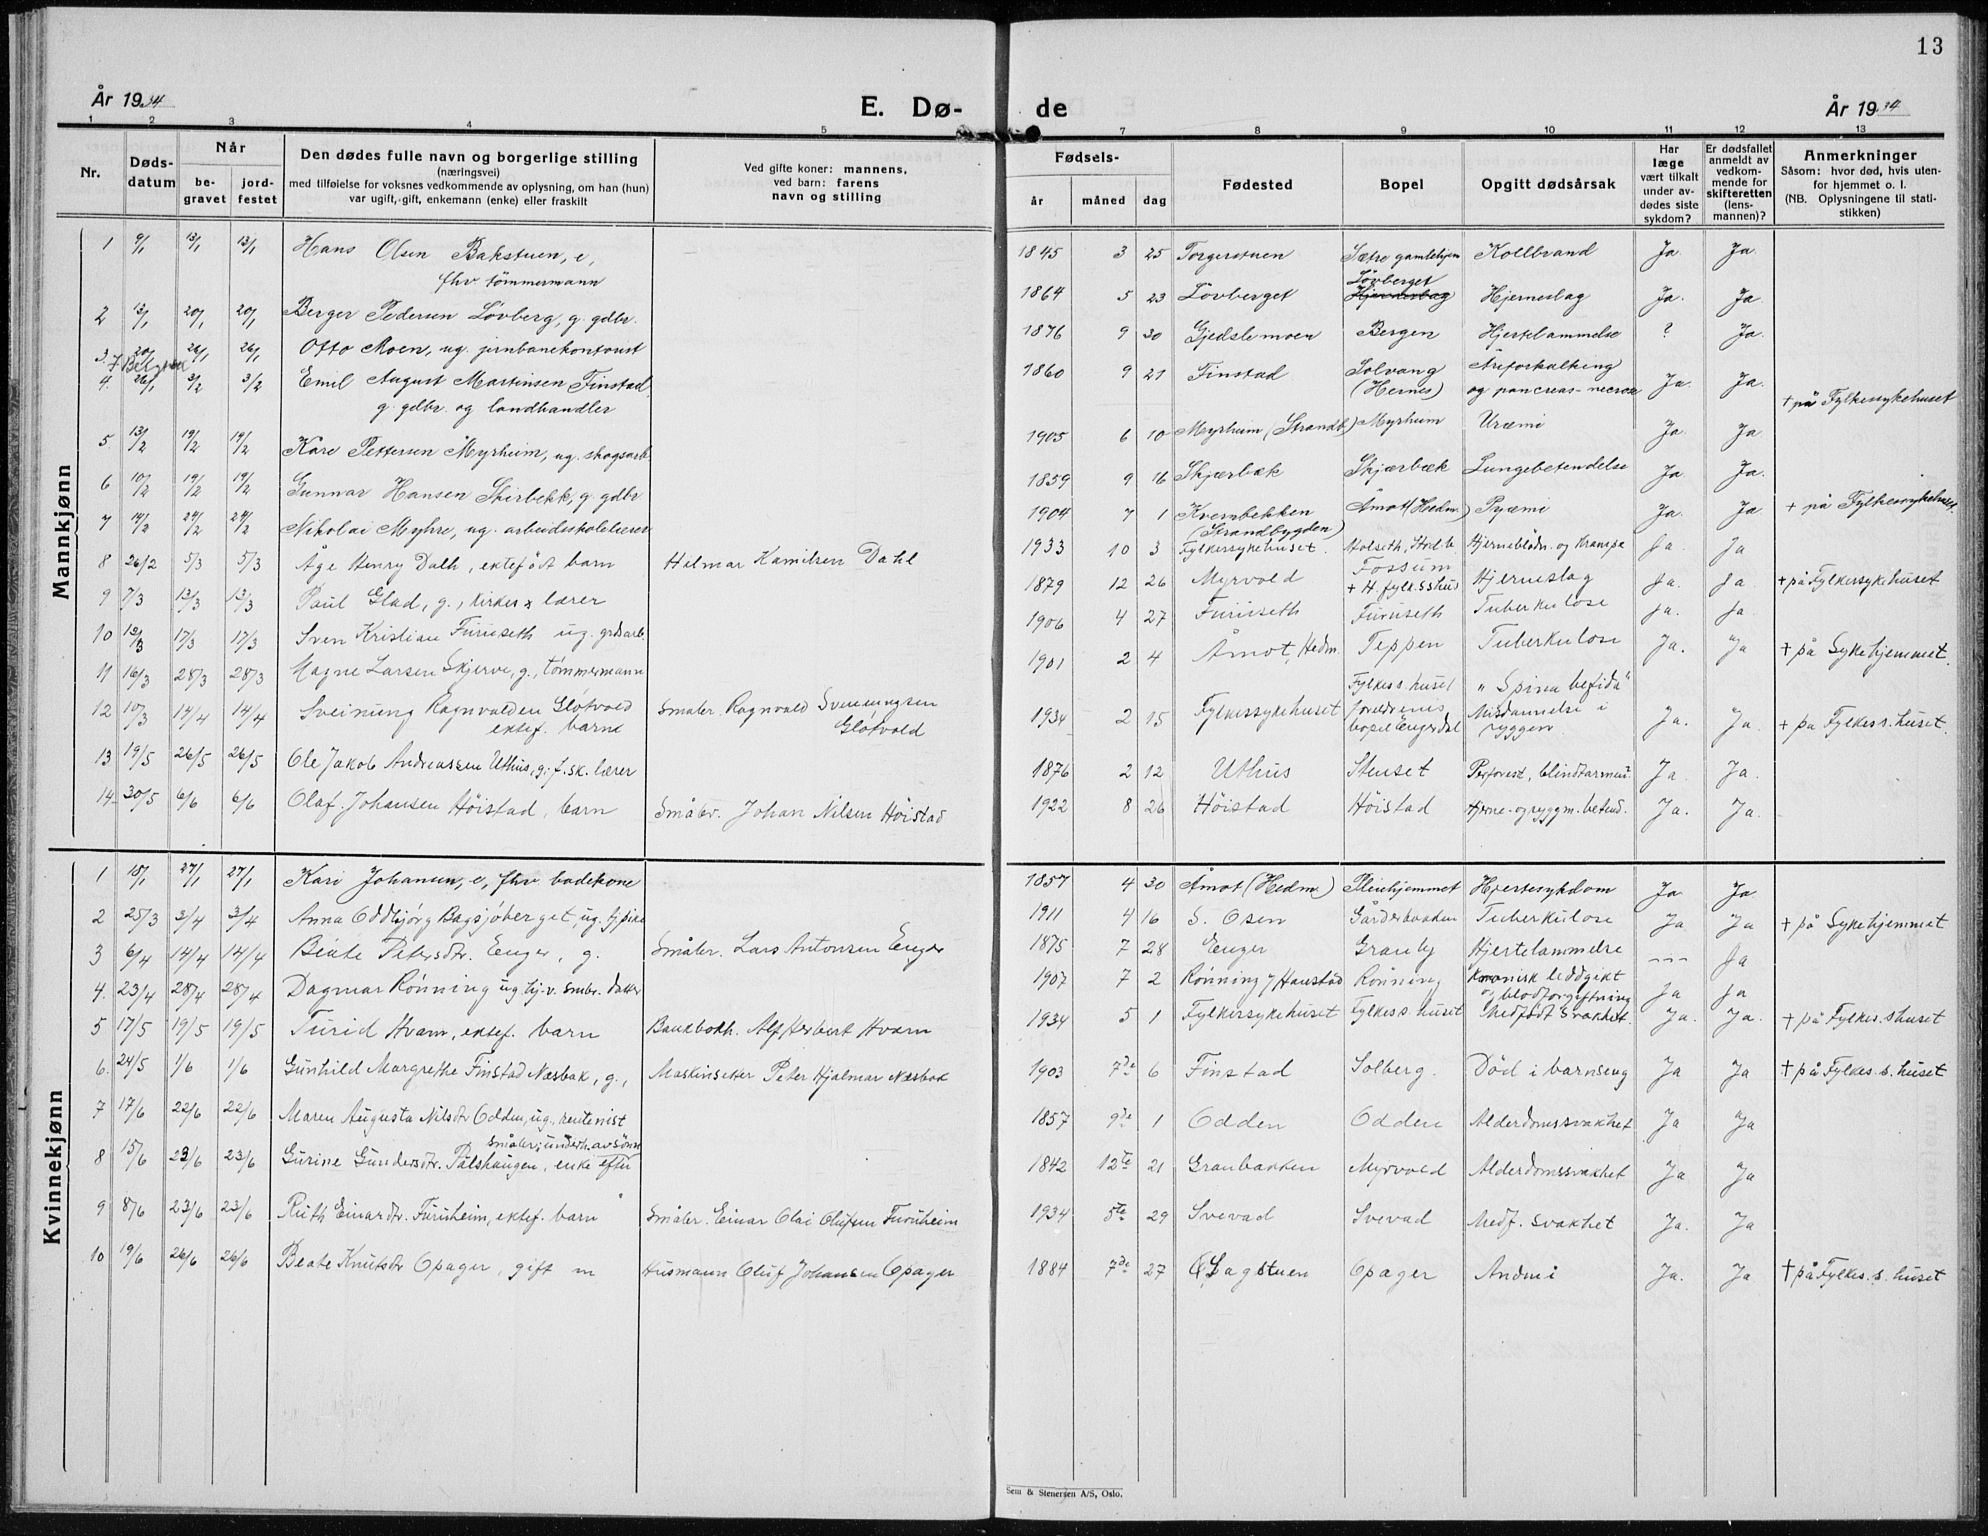 13
År 1934
E. Dø-
de
År 1934
1 2 3 4 5 7 8 9 10 11 12 13
Nr.
Døds-
datum
Når
be-
gravet
jord-
festet
Den dødes fulle navn og borgerlige stilling
(næringsvei)
med tilføielse for voksnes vedkommende av oplysning, om han (hun)
var ugift, gift, enkemann (enke) eller fraskilt
Ved gifte koner: mannens,
ved barn: farens
navn og stilling
Fødsels-
år måned dag
Fødested
Bopel
Opgitt dødsårsak
Har
læge
vært tilkalt
under av-
dødes siste
sykdom?
Er dødsfallet
anmeldt av
vedkom-
mende for
skifteretten
(lens-
mannen)?
Anmerkninger
Såsom: hvor død, hvis uten-
for hjemmet o. l.
(NB. Oplysningene til stati-
stikken)
Mannkjønn
1 9/1 13/1 13/1 Hans Olsen Bakstuen, e, 1845 3 25 Torgerstuen Sætre gamlehjem Kollbrand Ja Ja
fhv tömmermann
2 13/1 20/1 20/1 Berger Pedersen Lövberg, g. gdbr. 1864 5 23 Lövberget Lövberget Hjerneslag Ja. Ja
3 20/1 26/1 26/1 Otto Moen, ug. jernbanekontorist 1876 9 30 Gjedslemoen Bergen Hjertelammelse ? Ja
4. 26/1 3/2 3/2 Emil August Martinsen Finstad, 1860 9 21 Finstad Solvang (Hernes) Åreforkalkning og pancreas-necrose Ja. Ja. + på Fylkessykehuset
g. gdbr. og landhandler
5 13/2 19/2 19/2 Kåre Pettersen Myrheim, ug. skogsarb. 1905 6 10 Myrheim (Strandb.) Myrheim Uræmi Ja. Ja
6 10/2 19/2 19/2 Gunnar Hansen Skirbekk, g. gdbr 1859 9 16 Skjærbæk Skjærbæk Lungebetendelse Ja Ja.
7 14/2 24/2 24/2 Nikolai Myhre, ug. arbeidsskolelærer 1904 7 1 Kvernbekken (Strandbygden) Åmot (Hedm.) Pyæmi Ja. Ja + på Fylkessykehuset.
8 26/2 5/3 5/3 Åge Henry Dalh, ektefödt barn Hilmar Kamilsen Dahl 1933 10 3 Fylkessykehuset. Hjerneblödn. og krampe Ja. Ja
9 7/3 13/3 13/3 Paul Glad, g., kirkes. lærer 1879 12 26 Myrvold Fossum + H. fylk.sshus Hjerneslag Ja. Ja + på Fylkessykehuset
10 13/3 17/3 17/3 Sven Kristian Furuseth ug. grdsarb. 1906 4 27 Furuseth Furuseth Tuberkulose Ja. Ja.
11 16/3 28/3 28/3 Magne Larsen Skjerve, g., tömmermann 1901 2 4 Åmot, Hedm. Teppen Tuberkulose Ja. Ja + på Sykehjemmet.
12 10/3 14/4 14/4 Sveinung Ragnvalden Glötvold Småbr. Ragnvald Sveinungsen Glötvold 1934 2 15 Fylkessykehuset Fylkess.huset foreldrenes bopel Engerdal "Spina befida" Misdannelse i ryggen Ja. Ja. + på Fylkess.huset.
ektef. barn
13 19/5 26/5 26/5 Ole Jakob Andreassen Uthus, g. f. sk. lærer 1876 2 12 Uthus Stenset Perforest. blindtarmen Ja. Ja.
14 30/5 6/6 6/6 Olaf Johansen Höistad, barn Småbr. Johan Nilsen Höistad 1922 8 26 Höistad Höistad Hjerne- og ryggm. betend. Ja. Ja.
Kvinnekjønn
1 18/1 27/1 27/1 Kari Johansen, e, fhv badekone 1857 4 30 Åmot (Hedm.) Pleiehjemmet Hjertesykdom Ja Ja
2 25/3 3/4 3/4 Anna Oddbjörg Bagsjöberget, ug. tj.pike 1911 4 16 S. Osen Gårderbakken Tuberkulose Ja Ja + på Sykehjemmet
3 6/4 14/4 14/4 Beate Petersdtr. Enger, g. Småbr. Lars Antonsen Enger 1875 7 28 Enger Granly Hjertelammelse --- Ja
4. 23/4 28/4 28/4 Dagmar Rönning ug. hj.v. småbr. datter 1907 7 2 Rönning / Haustad Rönning Kronisk leddgikt og blodforgiftning Ja Ja
5 17/5 19/5 19/5 Turid Hvam, ektef. barn Bankbokh. Alf Herbert Hvam 1934 5 1 Fylkessykehuset Fylkess.huset Medfödt svakhet. Ja. Ja. + på Fylkes.shuset
6. 24/5 1/6 1/6 Gunhild Margrethe Finstad Næsbak, g., Maskinsetter Peter Hjalmar Næsbak 1903 7de 6 Finstad Solberg. Död i barnseng Ja Ja + på Fylkes.s.huset
7 17/6 22/6 22/6 Maren Augusta Nilsdtr Odden, ug. rentenist 1857 9de 1 Odden Odden Alderdomssvakhet Ja Ja
småbr; underh. av sönn
8 15/6 23/6 23/6 Gurine Gundersdtr. Pålshaugen, enke efter 1842 12te 21 Granbakken Myrvold Alderdomssvakhet Ja Ja
9 8/6 23/6 23/6 Ruth Einardtr. Furuheim, ektef. barn Småbr. Einar Olai Olufsen Furuheim 1934 5te 29 Svevad Svevad Medf. svakhet Ja. Ja
10 19/6 26/6 26/6 Beate Knutsdtr Opager, gift m Husmann Oluf Johansen Opager 1884 7de 27 Sagstuen Opager Anæmi Ja. Ja + på Fylkes.s.huset
Sem & Stenersen A/S, Oslo.